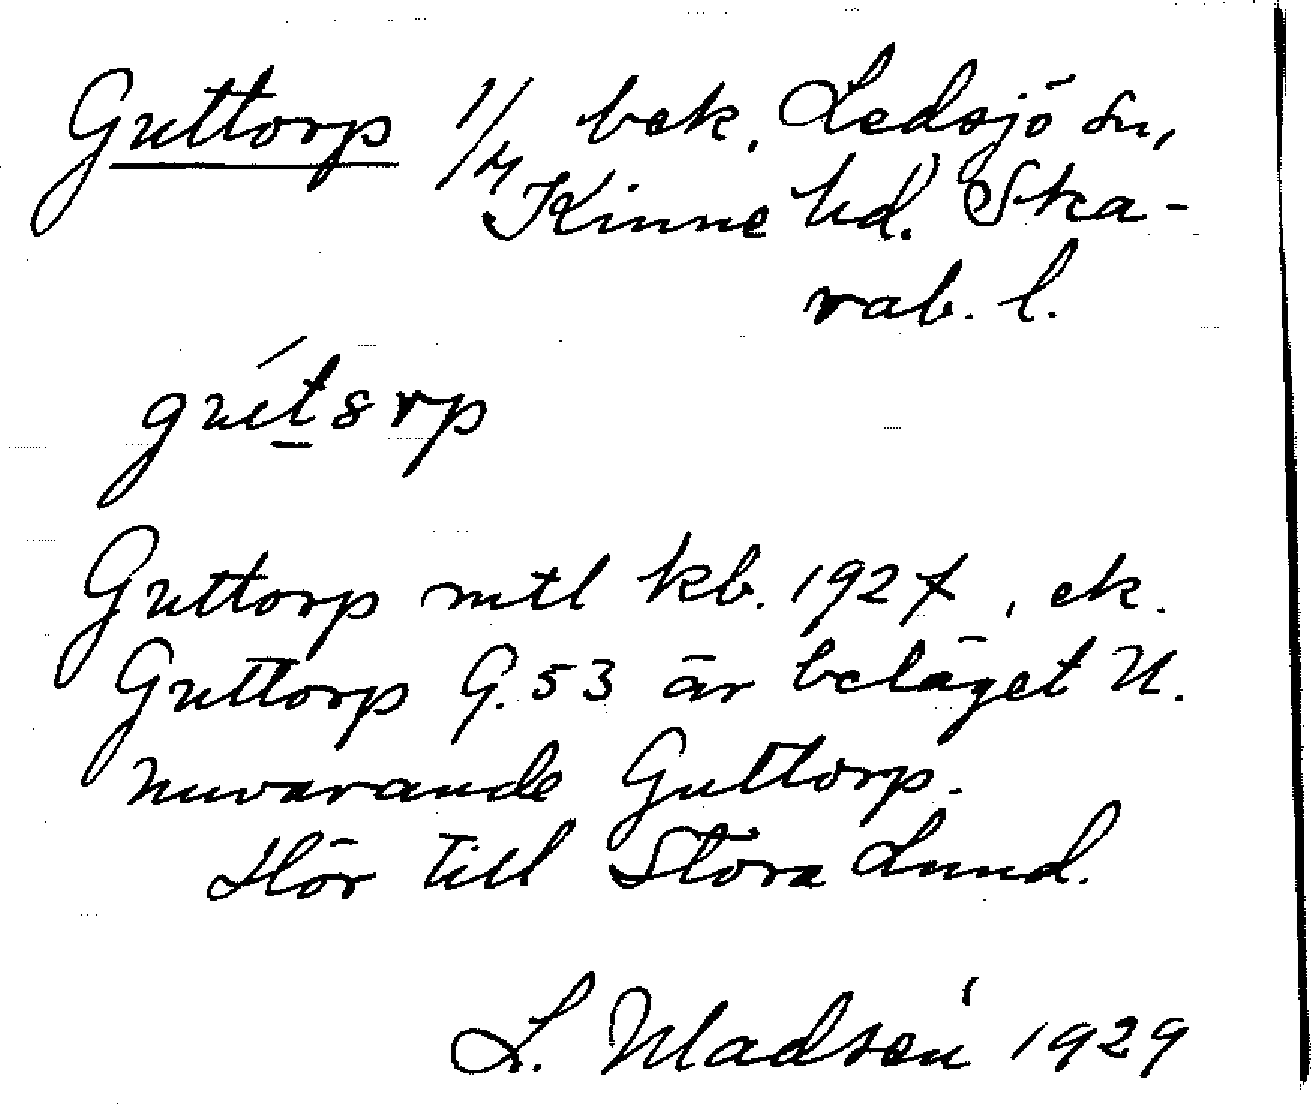 Guttorp 1/4 bek. Ledsjö sn,
Kinne hd. Ska-
rab. l.
gút8rp
Guttorp mtl kb. 1927, ek.
Guttorp G. 53 är beläget N.
nuvarande Guttorp.
Hör till Stora Lund.
L. Madsén 1929